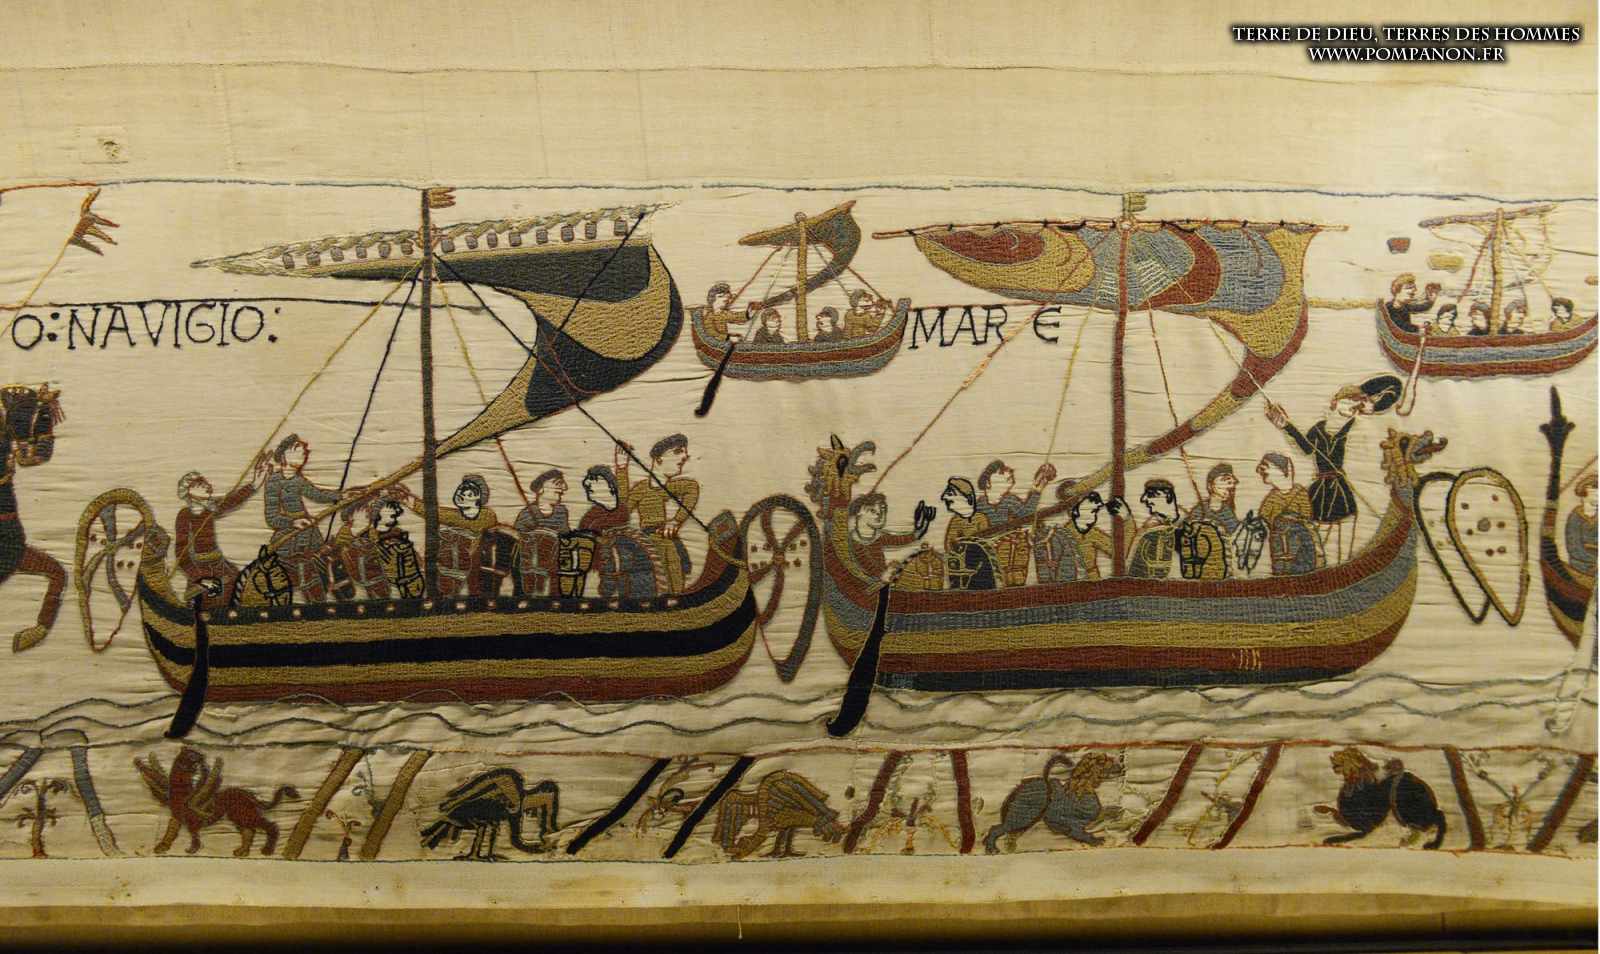 TERRE DE DIEU, TERRES DES HOMMES
WWW.POMPANON.FR
O:NAVIGIO:
MARE